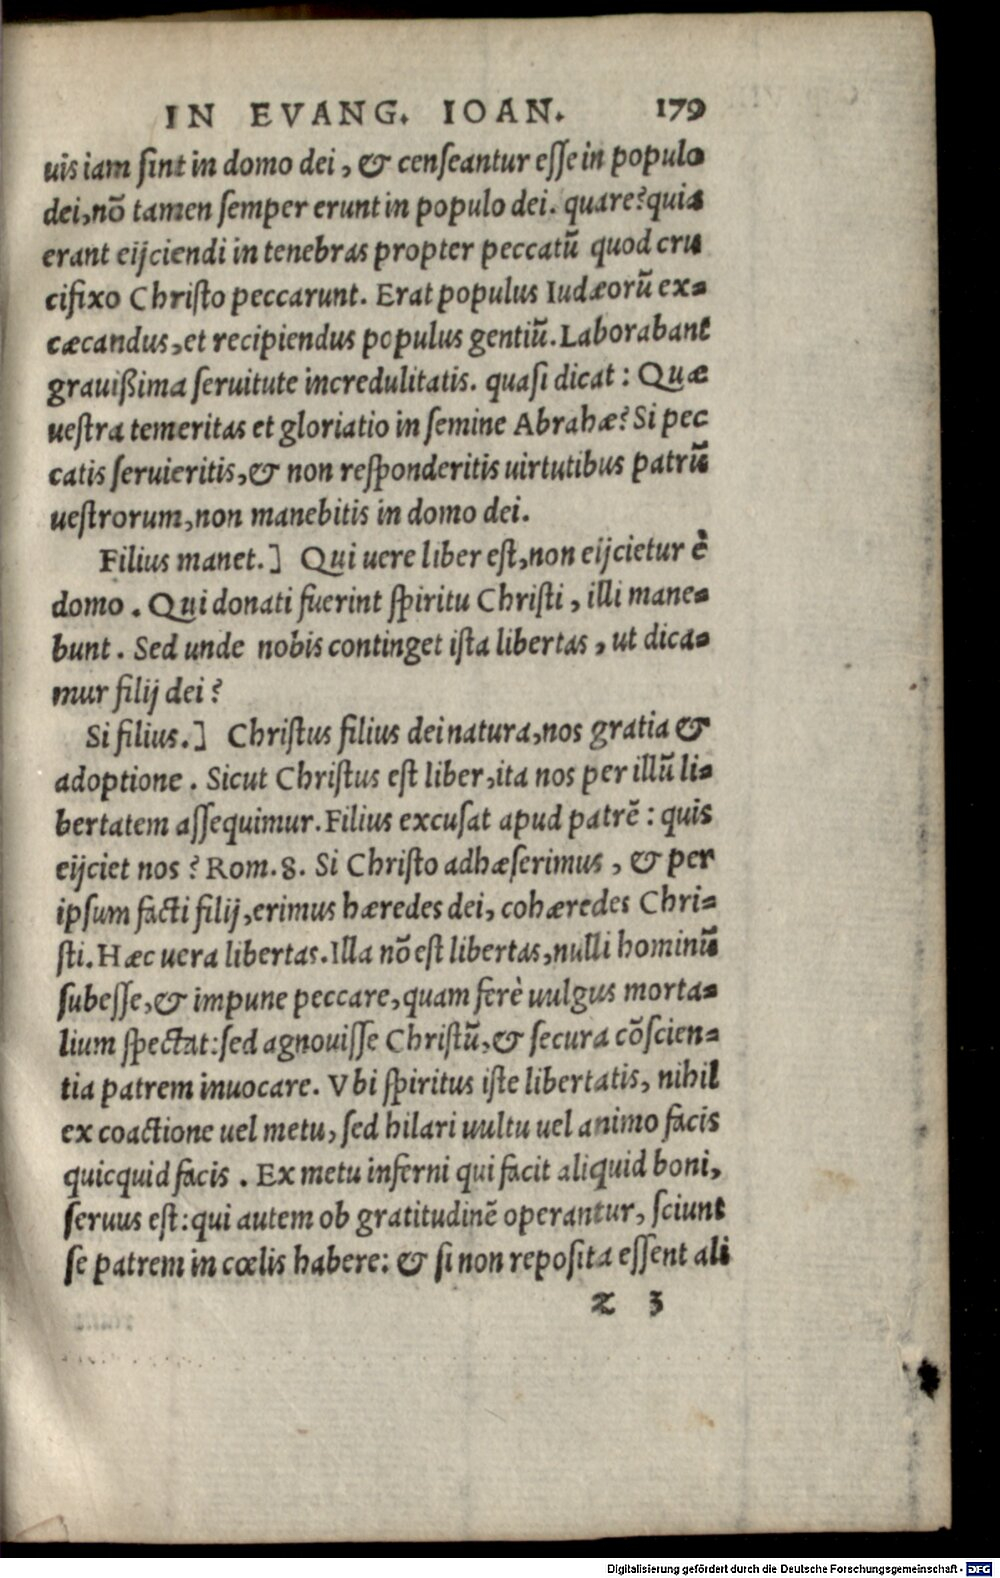 IN EVANG. IOAN. 179
uis iam ſint in domo dei, & cenſeantur eſſe in populo
dei, nō tamen ſemper erunt in populo dei. quare? quia
erant eijciendi in tenebras propter peccatū quod cru
cifixo Chriſto peccarunt. Erat populus Iudæorū ex-
cæcandus, et recipiendus populus gentiū. Laborabant
grauißima ſeruitute incredulitatis. quaſi dicat: Quæ
ueſtra temeritas et gloriatio in ſemine Abrahæ? Si pec
catis ſeruieritis, & non reſponderitis uirtutibus patrū
ueſtrorum, non manebitis in domo dei.
Filius manet.] Qui uere liber eſt, non eijcietur è
domo. Qui donati fuerint ſpiritu Chriſti, illi mane-
bunt. Sed unde nobis continget iſta libertas, ut dica-
mur filij dei?
Si filius.] Chriſtus filius dei natura, nos gratia &
adoptione. Sicut Chriſtus eſt liber, ita nos per illū li-
bertatem aſſequimur. Filius excuſat apud patrē: quis
eijciet nos? Rom. 8. Si Chriſto adhæſerimus, & per
ipſum facti filij, erimus hæredes dei, cohæredes Chri-
ſti. Hæc uera libertas. Illa nō eſt libertas, nulli hominū
ſubeſſe, & impune peccare, quam ferè uulgus morta-
lium ſpectat: ſed agnouiſſe Chriſtū, & ſecura cōſcien-
tia patrem inuocare. Vbi ſpiritus iſte libertatis, nihil
ex coactione uel metu, ſed hilari uultu uel animo facis
quicquid facis. Ex metu inferni qui facit aliquid boni,
ſeruus eſt: qui autem ob gratitudinē operantur, ſciunt
ſe patrem in cœlis habere: & ſi non repoſita eſſent ali
z 3
Digitalisierung gefördert durch die Deutsche Forschungsgemeinschaft - DFG